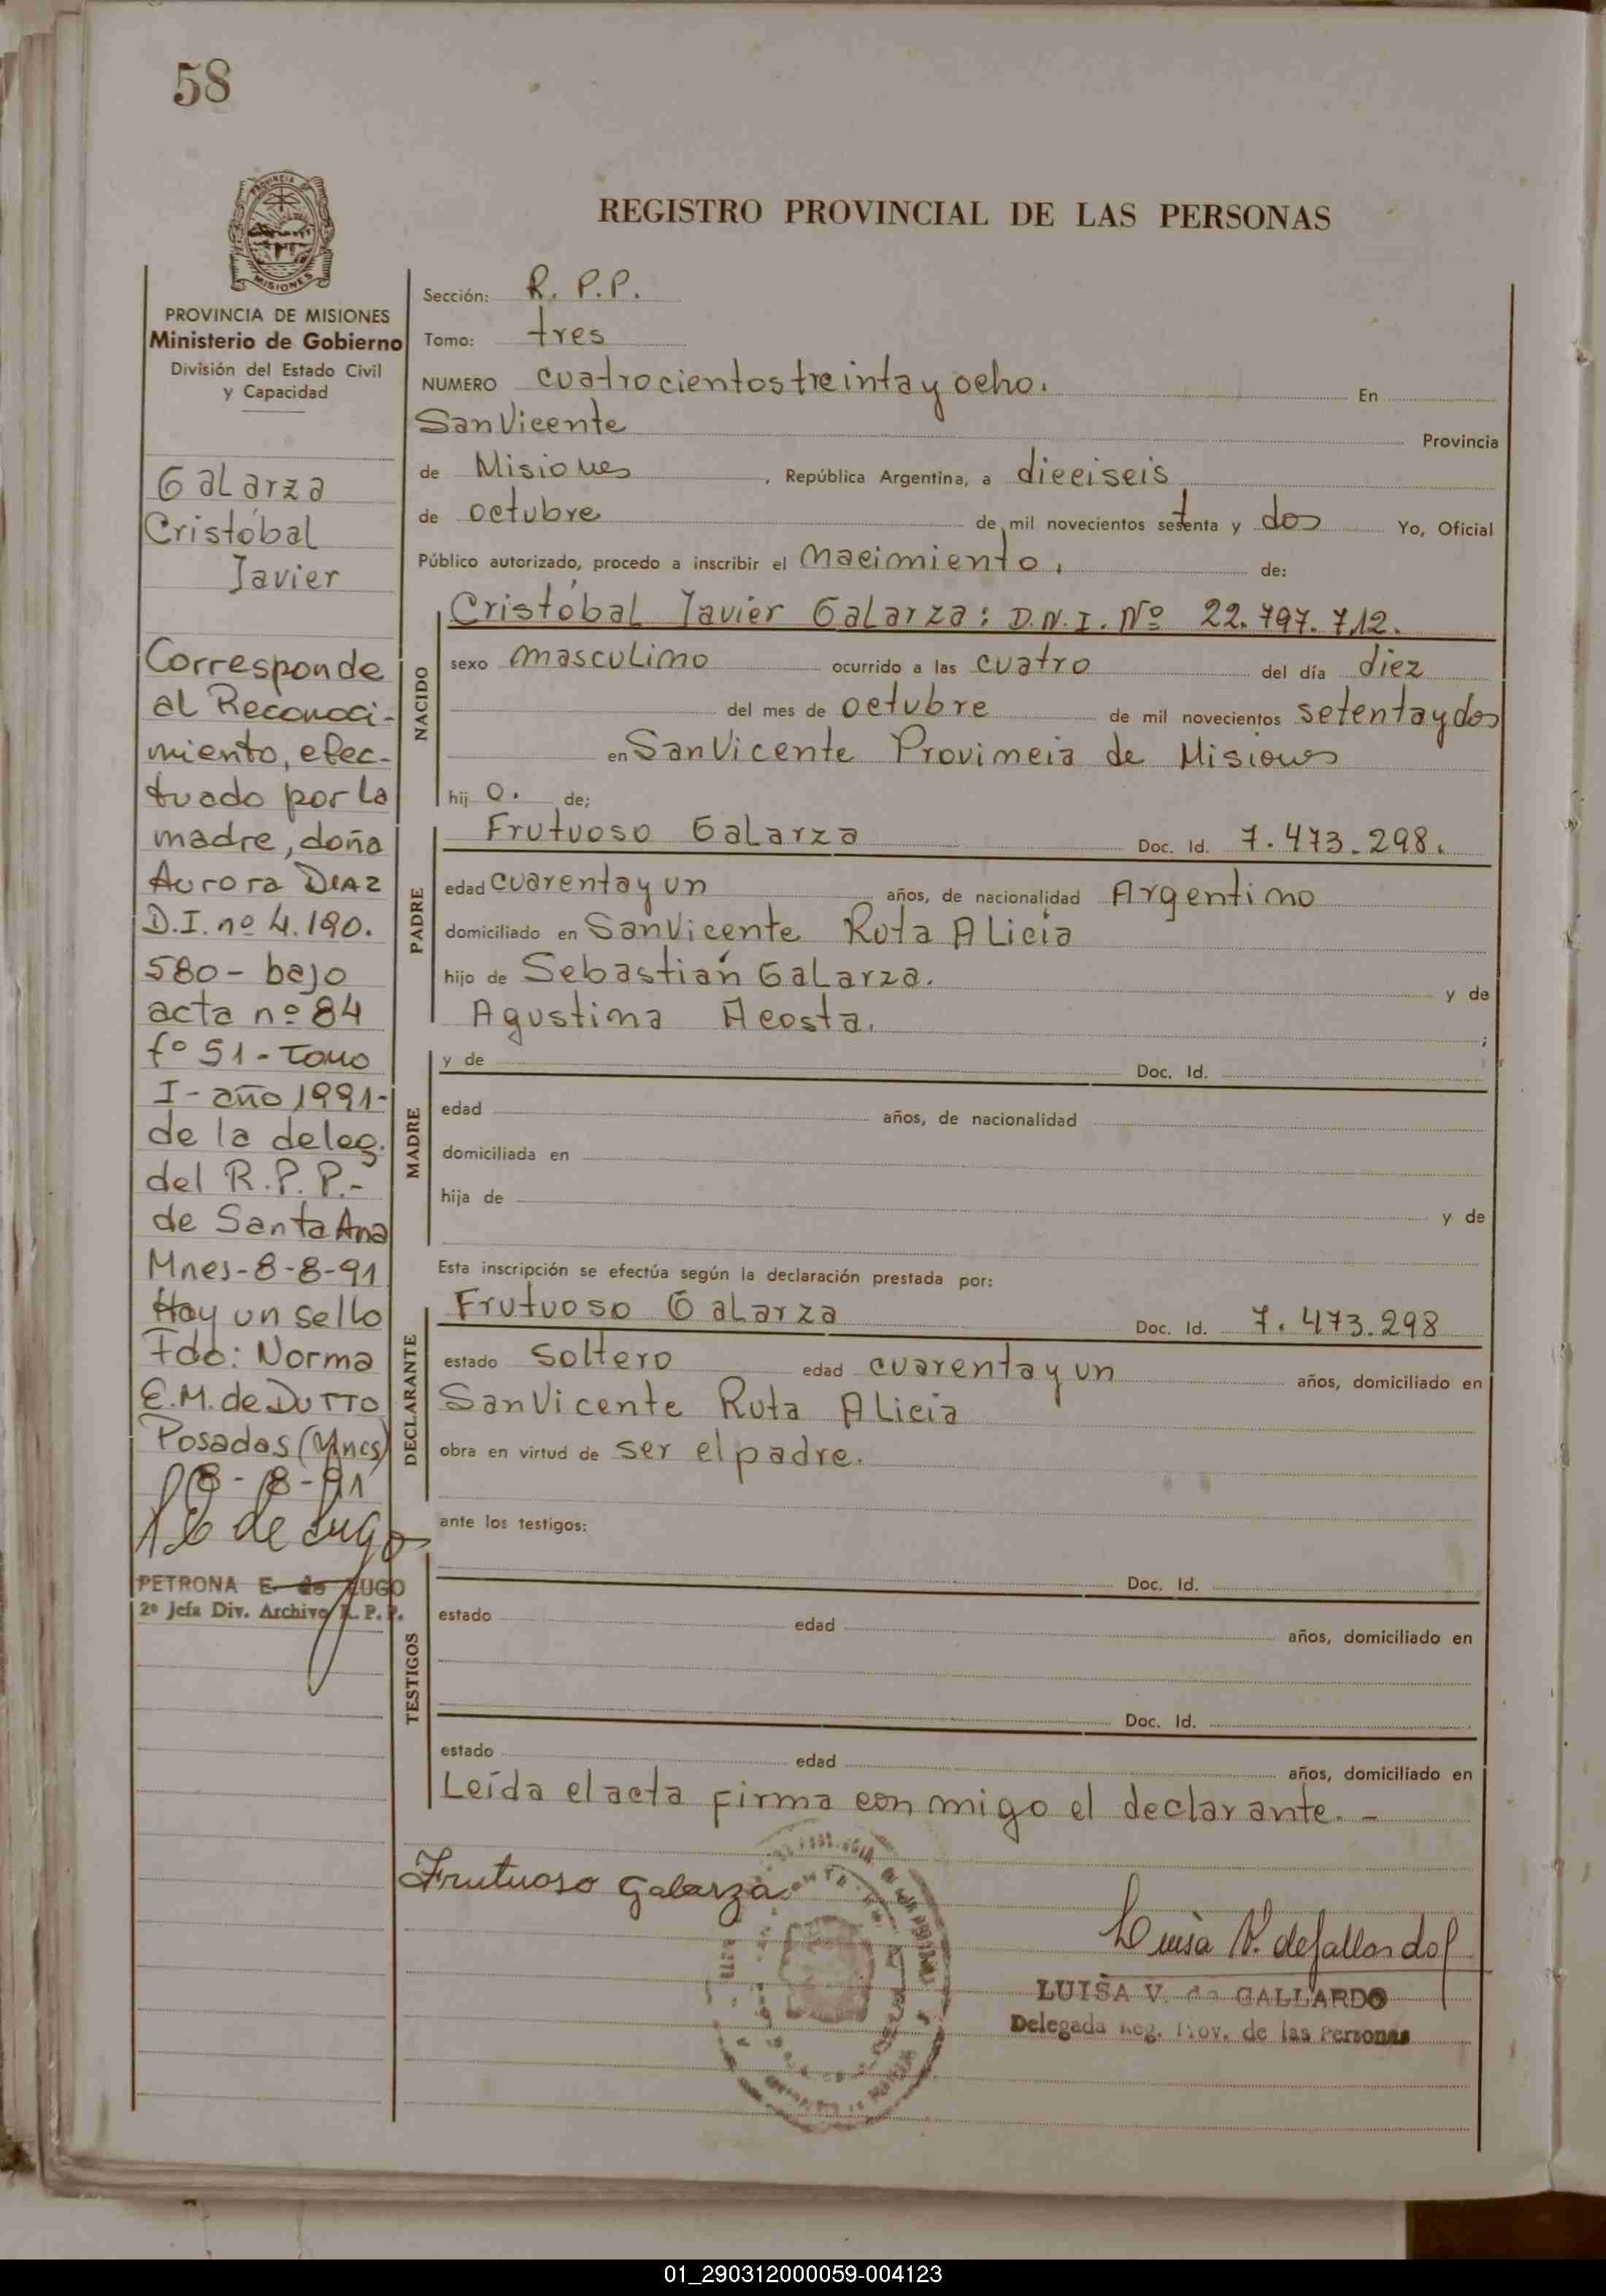 58
REGISTRO PROVINCIAL DE LAS PERSONAS
PROVINCIA DE MISIONES
Ministerio de Gobierno
División del Estado Civil
y Capacidad
Galarza
Cristóbal
Javier
Corresponde
al Reconoci-
miento, efec-
tuado por la
madre, doña
Aurora DIAZ
D.I. nº 4.190.
580 - bajo
acta nº 84
fº 51 - Tomo
I - año 1991-
de la deleg.
del R.P.P.-
de Santa Ana
Mnes-8-8-91
Hay un sello
Fdo: Norma
E.M. de DUTTO
Posadas (Mnes)
8-8-91
PETRONA E. de LUGO
2º Jefa Div. Archivo R. P. P.
Sección: R. P.P.
Tomo: tres
NUMERO cuatrocientos treinta y ocho. En
San Vicente Provincia
de Misiones , República Argentina, a dieciseis
de octubre de mil novecientos setenta y dos Yo, Oficial
Público autorizado, procedo a inscribir el nacimiento, de:
NACIDO
Cristóbal Javier Galarza: D.N.I. Nº 22.797.712.
sexo masculino ocurrido a las cuatro del día diez
del mes de octubre de mil novecientos setenta y dos
en San Vicente Provincia de Misiones
hij o. de;
PADRE
Frutuoso Galarza Doc. Id. 7.473.298.
edad cuarenta y un años, de nacionalidad Argentino
domiciliado en San Vicente Ruta Alicia
hijo de Sebastián Galarza. y de
Agustina Acosta. ;
MADRE
y de Doc. Id.
edad años, de nacionalidad
domiciliada en
hija de y de
Esta inscripción se efectúa según la declaración prestada por:
DECLARANTE
Frutuoso Galarza Doc. Id. 7.473.298
estado soltero edad cuarenta y un años, domiciliado en
San Vicente Ruta Alicia
obra en virtud de ser el padre.
ante los testigos:
TESTIGOS
Doc. Id.
estado edad años, domiciliado en
Doc. Id.
estado edad años, domiciliado en
Leída el acta firma con migo el declarante. -
Frutuoso Galarza
Luisa V. de Gallardo
LUISA V. de GALLARDO
Delegada Reg. Prov. de las Personas
01_290312000059-004123